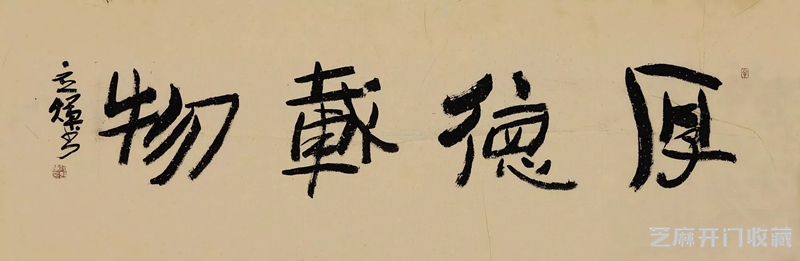 厚德載物
芝麻开门收藏